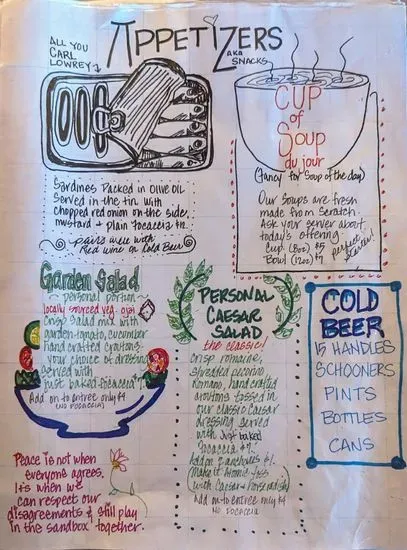 APPETIZERS
AKA
SNACKS
ALL YOU
CARL
LOWREY
Sardines Packed in Olive Oil
Served in the tin with
chopped red onion on the side,
mustard + plain focaccia
pairs well with
Red wine or Cold Beer
CUP
of
Soup
du jour
(fancy for Soup of the day)
Our Soups are fresh
made from Scratch.
Ask your server about
today's offering
Cup (8oz) $5
Bowl (12oz) $7
Garden Salad
personal portion
locally sourced veg. ojai
Crisp Salad mix with
garden tomato, cucumber
hand crafted croutons
your choice of dressing
served with
just baked focaccia
Add on to entree only $4
(NO FOCACCIA)
PERSONAL
CAESAR
SALAD
the classic!
crisp romaine,
shredded pecorino
Romano, hand crafted
croutons tossed in
our classic Caesar
dressing served
with Just baked
focaccia $7.
Add on 2 anchovies $1.
make it
with Caesar + horseradish
Add on to entree only $4
NO FOCACCIA
COLD
BEER
15 HANDLES
SCHOONERS
PINTS
BOTTLES
CANS
Peace is not when
everyone agrees.
It's when we
can respect our
disagreements & still play
in the sandbox together.